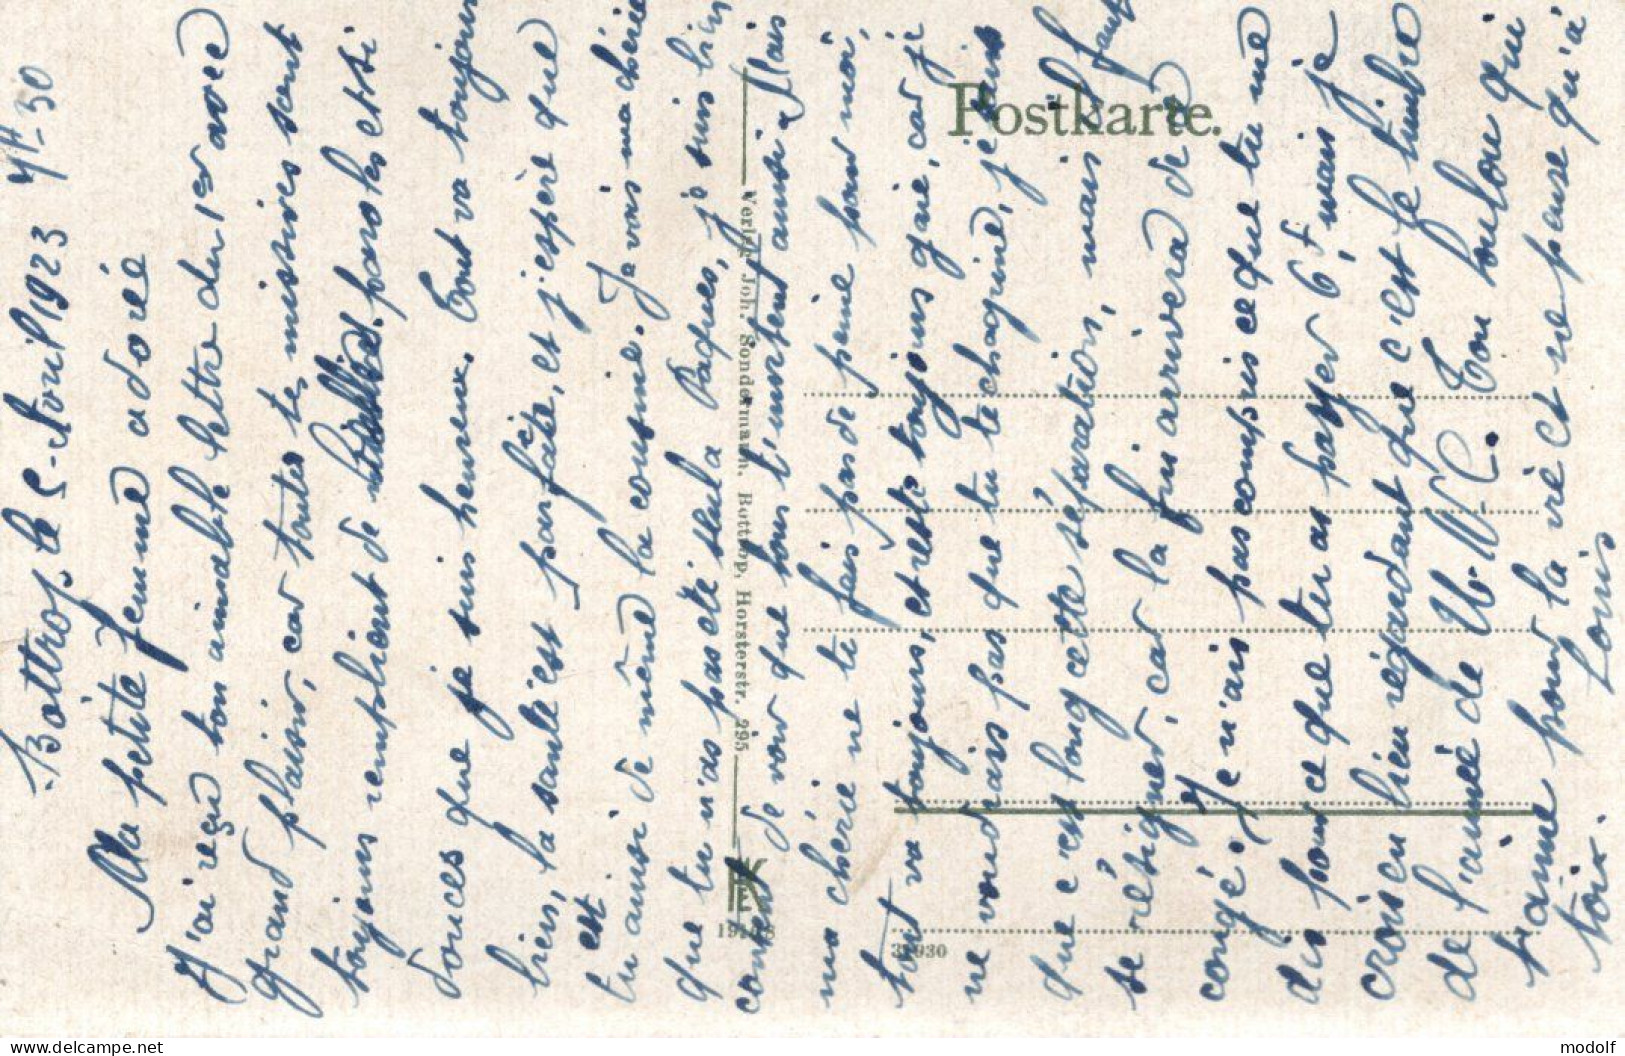 Bottrop, le 5 Avril 1923 
Ma petite femme adorée
J'ai reçu ton aimable lettre du 1er avec
grand plaisir, car toutes tes missives sont
toujours remplient de paroles et si
douces que je suis heureux. Tout va toujours
bien, la santé est parfaite, et j'espère que
tu est aussi de même la cousine. Je vois ma chérie
que tu n'as pas été seul a Paques, je suis bien
content de voir que tous t'invitent aussi. Mais
ma chérie ne te fais pas de peine pour moi,
tout va toujours, et reste toujours gaie, car je
ne voudrais pas que tu te chagrine, je sais
que c'est long cette séparation, mais il faut
se résigner, car la fin arrivera de
congés. Je n'ais pas compris ce que tu me
dis pour ce que tu as payer 6F, mais je
crois en lieu regardant que c'est le timbre
de l'année de l'U.N.C. Ton loulou qui
t'aime pour la vie et ne pense qu'à
toi. Louis
Postkarte.
Verlag Joh. Sondermann, Bottrop, Horsterstr. 295
31930
modolf